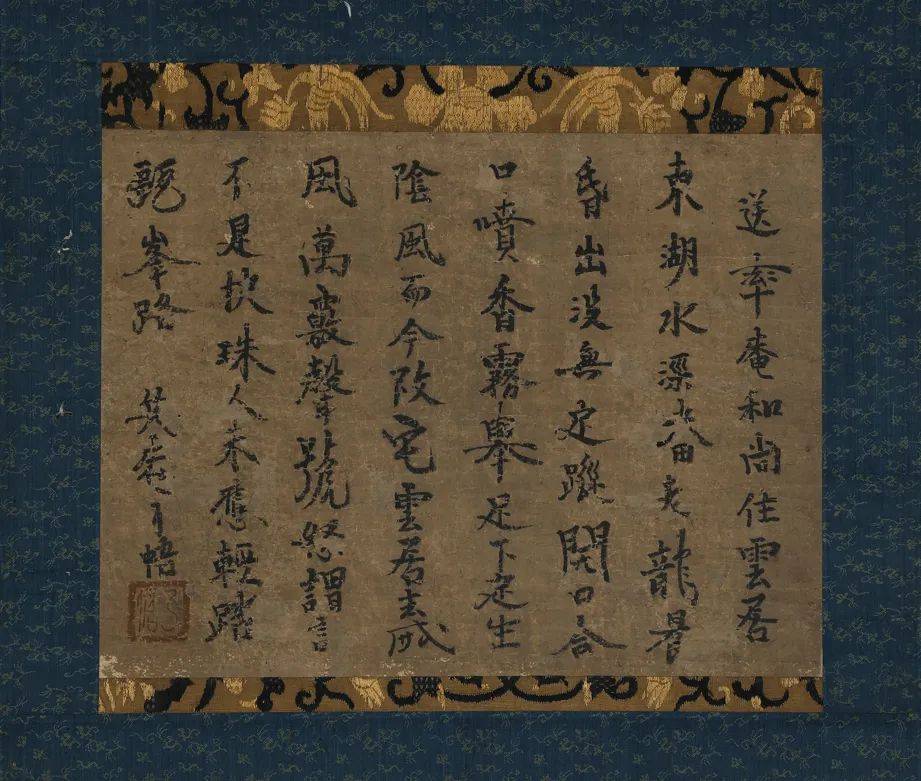 送率庵和尚住雲居
東湖水深畜老龍晨
昏出没無定蹤開口合
口噴香霧舉足下足生
陰風而今改宅雲居去威
風萬竅聲號怒謂言
不是珠人未應輕踏
甌峯路 笑庵了悟